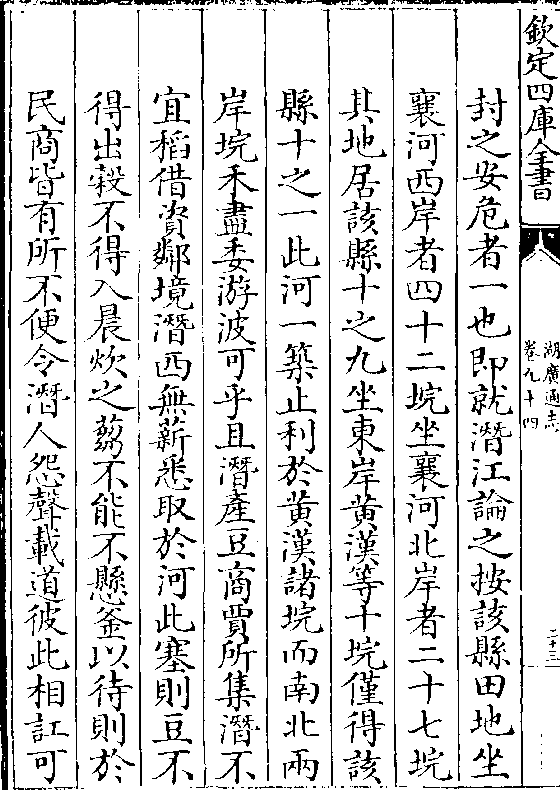 欽定四庫全書
湖廣通志
卷九十四
二十三
封之安危者一也即就潛江論之按該縣田地坐
襄河西岸者四十二垸坐襄河北岸者二十七垸
其地居該縣十之九坐東岸黄漢等十垸僅得該
縣十之一此河一築止利於黄漢諸垸而南北兩
岸垸禾盡委游波可乎且潛產豆商賈所集潛不
宜稻借資鄰境潛西無薪悉取於河此塞則豆不
得出穀不得入晨炊之蒭不能不懸釜以待則於
民商皆有所不便令潛人怨聲載道彼此相訌可